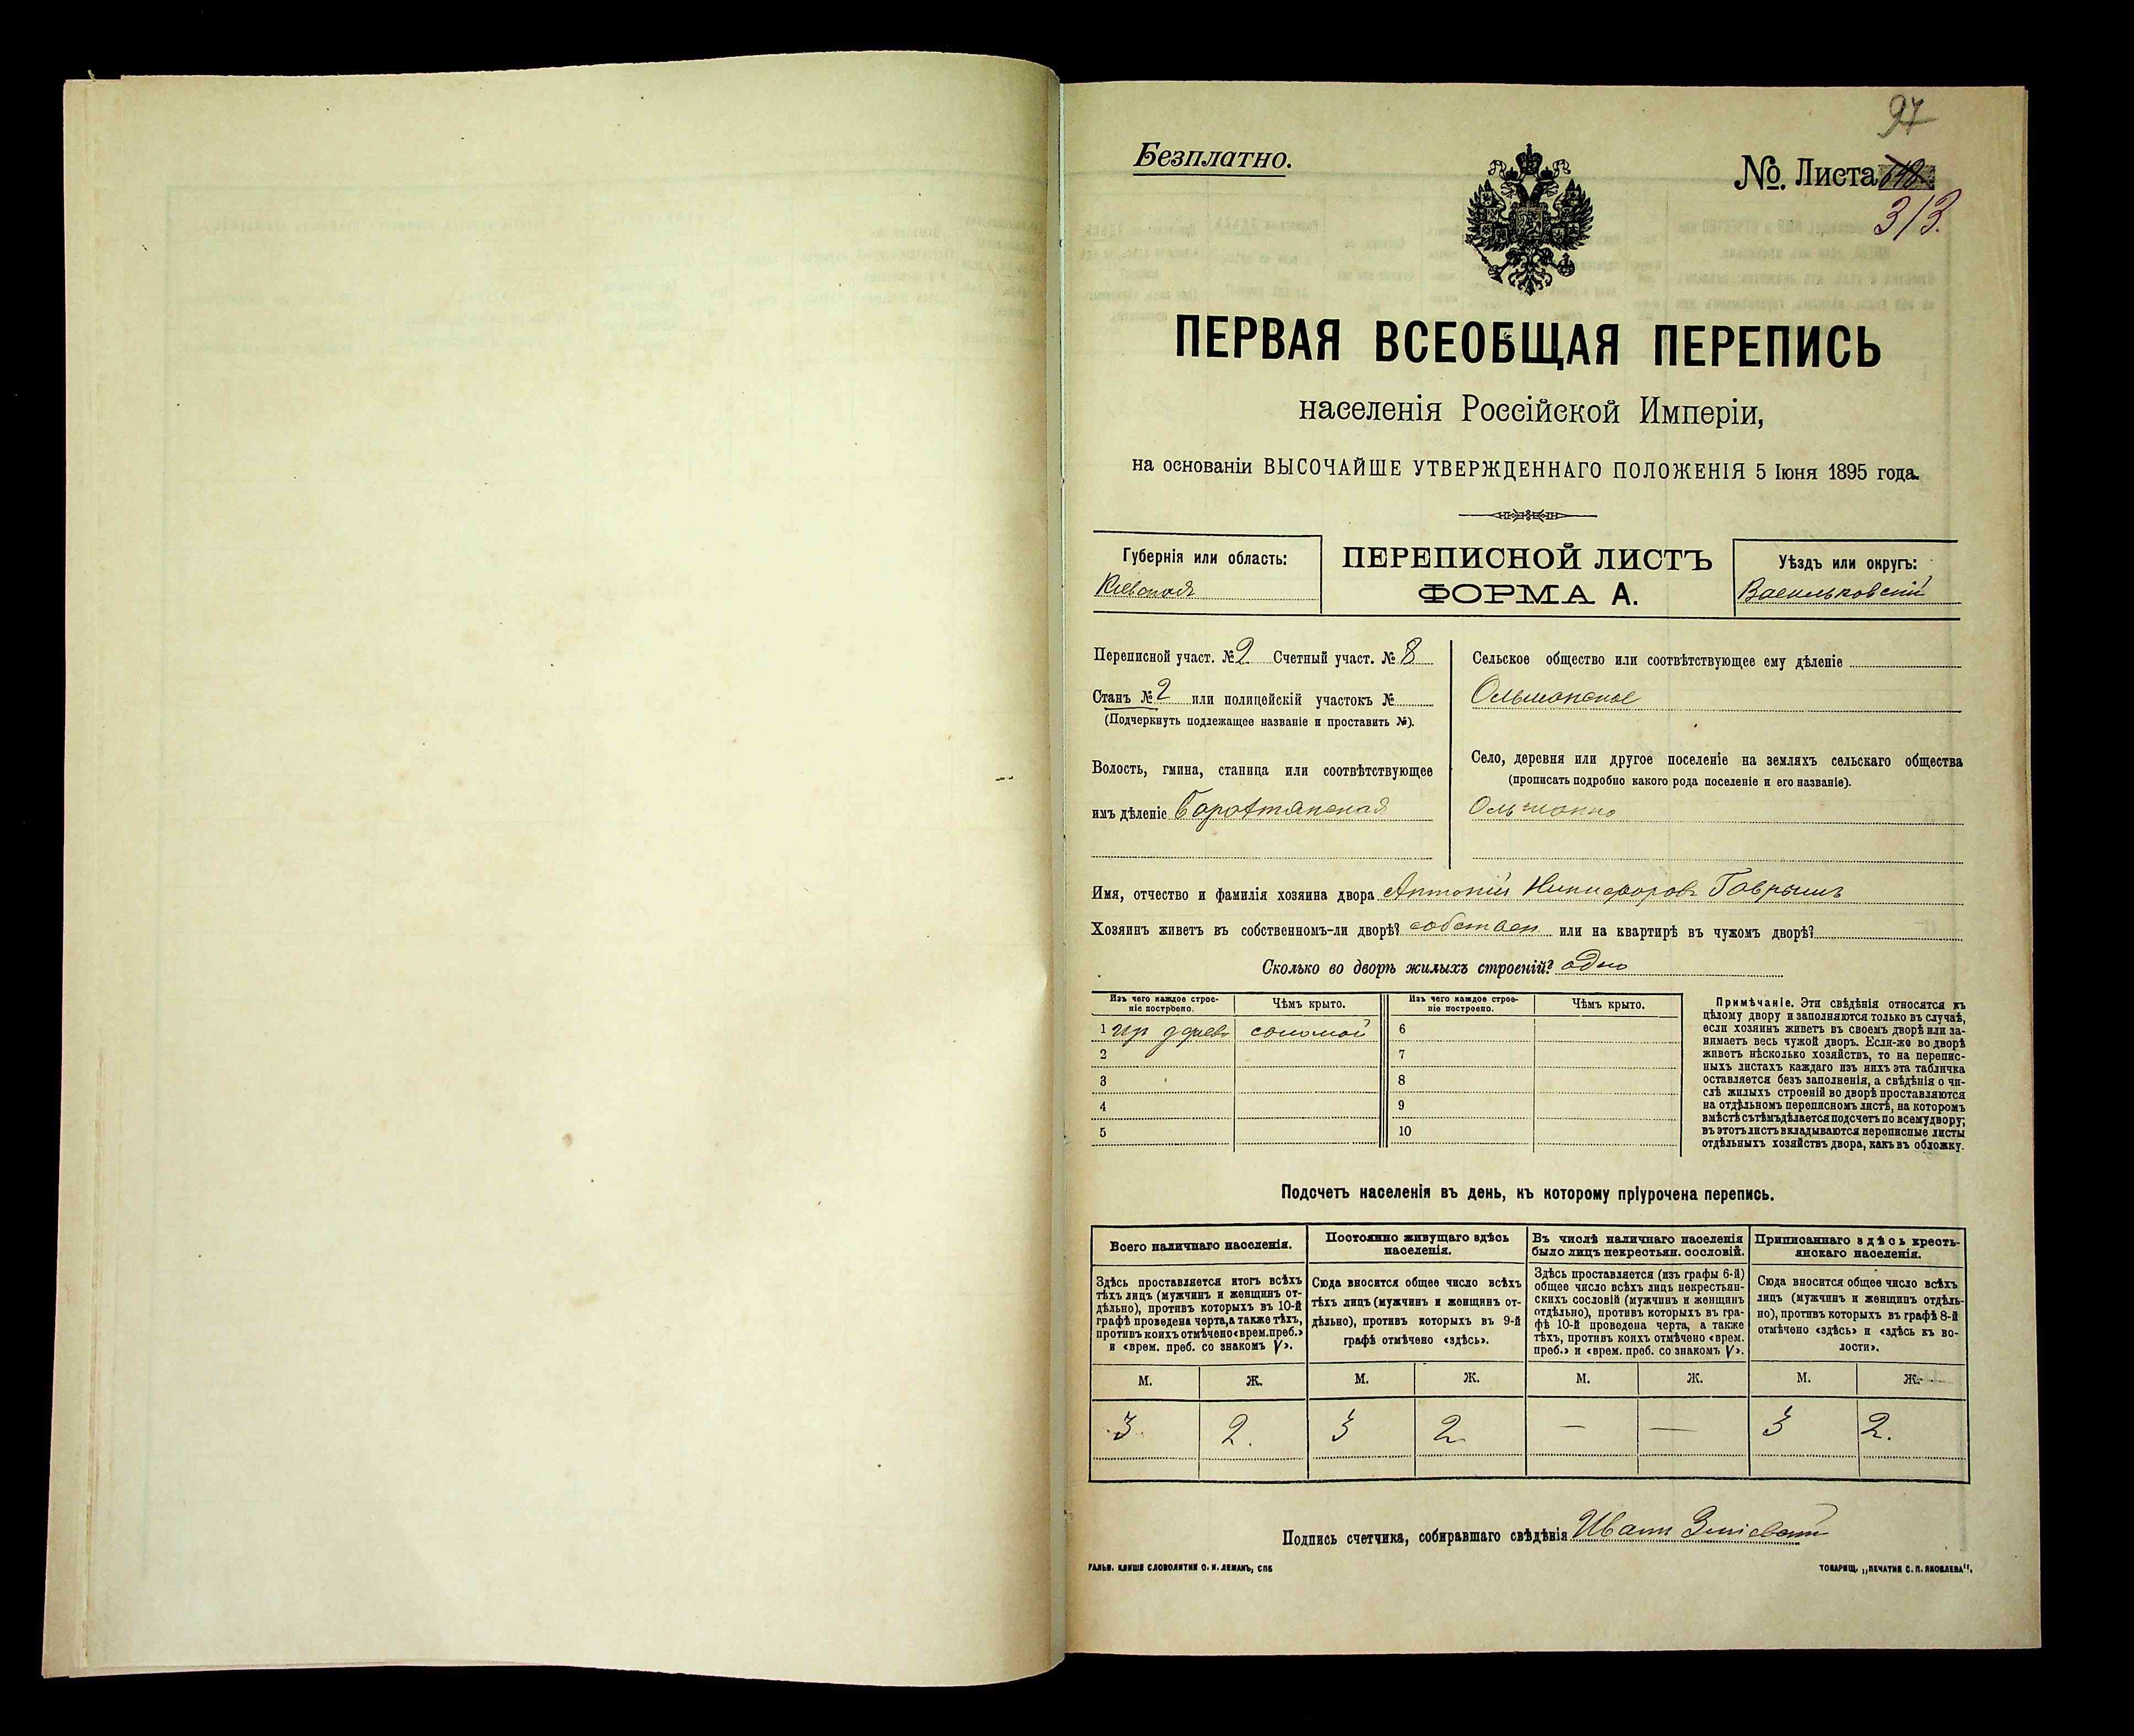 97
Безплатно.
№. Листа
313.
ПЕРВАЯ ВСЕОБЩАЯ ПЕРЕПИСЬ
населенія Россійской Имперіи,
на основаніи ВЫСОЧАЙШЕ УТВЕРЖДЕННАГО ПОЛОЖЕНІЯ 5 Іюня 1895 года.
Губернія или область:
Кіевская
ПЕРЕПИСНОЙ ЛИСТЪ
ФОРМА А.
Уѣздъ или округъ:
Васильковскій
Переписной участ. № 2 Счетный участ. № 8
Станъ № 2 или полицейскій участокъ №
(Подчеркнуть подлежащее названіе и проставить №).
Волость, гмина, станица или соотвѣтствующее
имъ дѣленіе
Сельское общество или соотвѣтствующее ему дѣленіе
Ольшанское
Село, деревня или другое поселеніе на земляхъ сельскаго общества
(прописать подробно какого рода поселеніе и его названіе).
Имя, отчество и фамилія хозяина двора Антоній Никифоровъ Гаврышъ
Хозяинъ живетъ въ собственномъ-ли дворѣ? собствен или на квартирѣ въ чужомъ дворѣ?
Сколько во дворѣ жилыхъ строеній? одно
Изъ чего каждое строе-
ніе построено.
Чѣмъ крыто.
Изъ чего каждое строе-
ніе построено.
Чѣмъ крыто.
1 соломой 6
2 7
3 8
4 9
5 10
Примѣчаніе. Эти свѣдѣнія относятся къ
цѣлому двору и заполняются только въ случаѣ,
если хозяинъ живетъ въ своемъ дворѣ или за-
нимаетъ весь чужой дворъ. Если-же во дворѣ
живетъ нѣсколько хозяйствъ, то на перепис-
ныхъ листахъ каждаго изъ нихъ эта табличка
оставляется безъ заполненія, а свѣдѣнія о чи-
слѣ жилыхъ строеній во дворѣ проставляются
на отдѣльномъ переписномъ листѣ, на которомъ
вмѣстѣ съ тѣмъ дѣлается подсчетъ по всему двору;
въ этотъ листъ вкладываются переписные листы
отдѣльныхъ хозяйствъ двора, какъ въ обложку.
Подсчетъ населенія въ день, къ которому пріурочена перепись.
Всего наличнаго населенія.
Здѣсь проставляется итогъ всѣхъ
тѣхъ лицъ (мужчинъ и женщинъ от-
дѣльно), противъ которыхъ въ 10-й
графѣ проведена черта, а также тѣхъ,
противъ коихъ отмѣчено «врем. преб.»
и «врем. преб. со знакомъ V».
Постоянно живущаго здѣсь
населенія.
Сюда вносится общее число всѣхъ
тѣхъ лицъ (мужчинъ и женщинъ от-
дѣльно), противъ которыхъ въ 9-й
графѣ отмѣчено «здѣсь».
Въ числѣ наличнаго населенія
было лицъ некрестьян. сословій.
Здѣсь проставляется (изъ графы 6-й)
общее число всѣхъ лицъ некрестьян-
скихъ сословій (мужчинъ и женщинъ
отдѣльно), противъ которыхъ въ гра-
фѣ 10-й проведена черта, а также
тѣхъ, противъ коихъ отмѣчено «врем.
преб.» и «врем. преб. со знакомъ V».
Приписаннаго здѣсь кресть-
янскаго населенія.
Сюда вносится общее число всѣхъ
лицъ (мужчинъ и женщинъ отдѣль-
но), противъ которыхъ въ графѣ 8-й
отмѣчено «здѣсь» и «здѣсь къ во-
лости».
М. Ж. М. Ж. М. Ж. М. Ж.
3. 2. 3 2 — — 3 2.
Подпись счетчика, собиравшаго свѣдѣнія Иванъ
ГАЛЬВ. КЛИШЕ СЛОВОЛИТНИ О. И. ЛЕМАНЪ, СПБ
ТОВАРИЩ. „ПЕЧАТНЯ С. П. ЯКОВЛЕВА“.